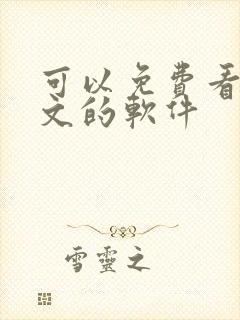 可以免費看
文的軟件
雪靈之